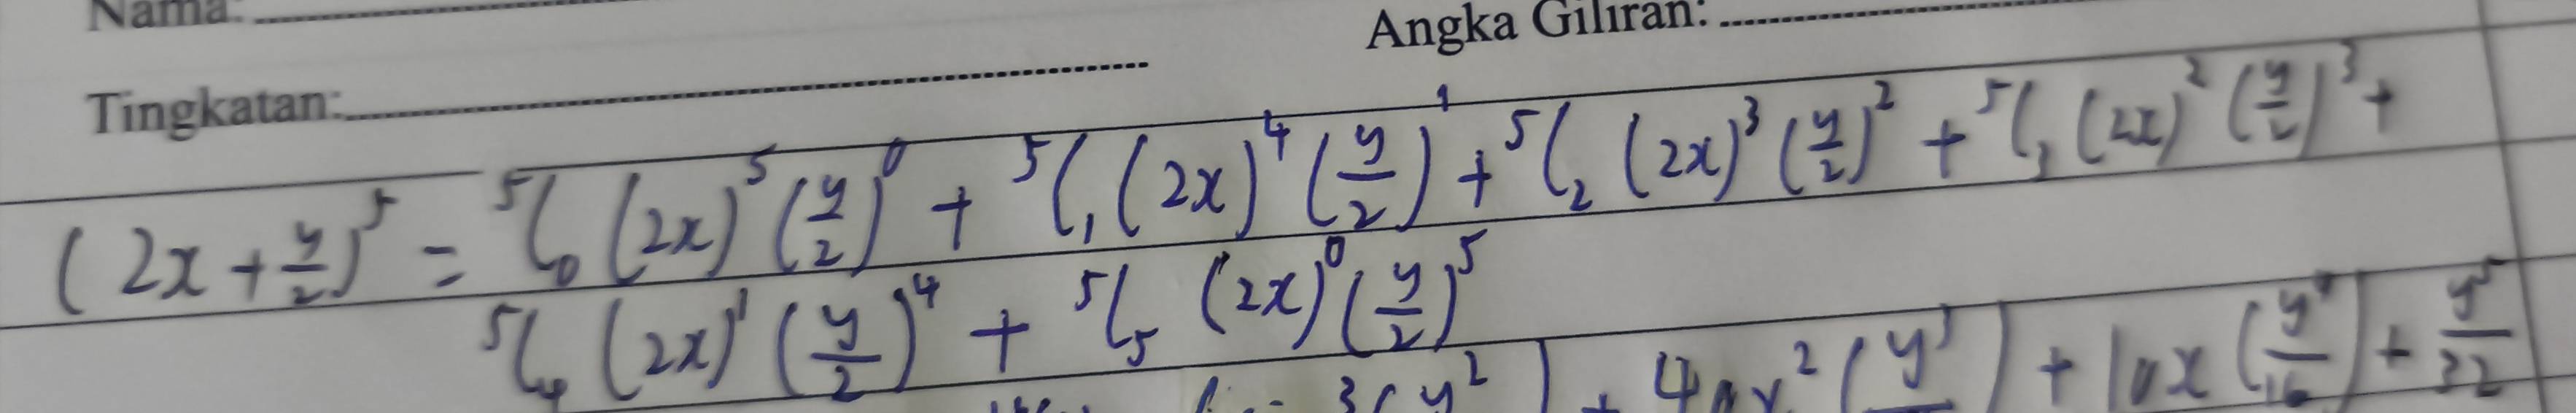 Nama:
Angka Giliran:
Tingkatan:
(2x + y/2)^5 = ⁵C₀ (2x)^5 (y/2)^0 + ⁵C₁ (2x)^4 (y/2)^1 + ⁵C₂ (2x)^3 (y/2)^2 + ⁵C₃ (2x)^2 (y/2)^3 +
⁵C₄ (2x)^1 (y/2)^4 + ⁵C₅ (2x)^0 (y/2)^5
+ 10x (y^4/16) + y^5/32